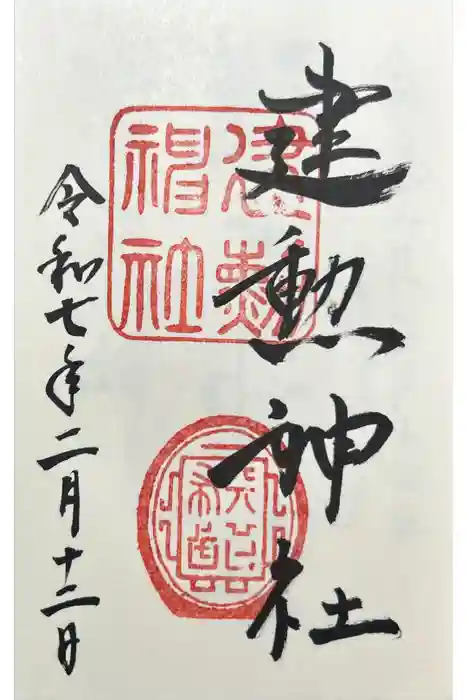 建勲神社
建勲
神社
天下布武
令和七年二月十二日